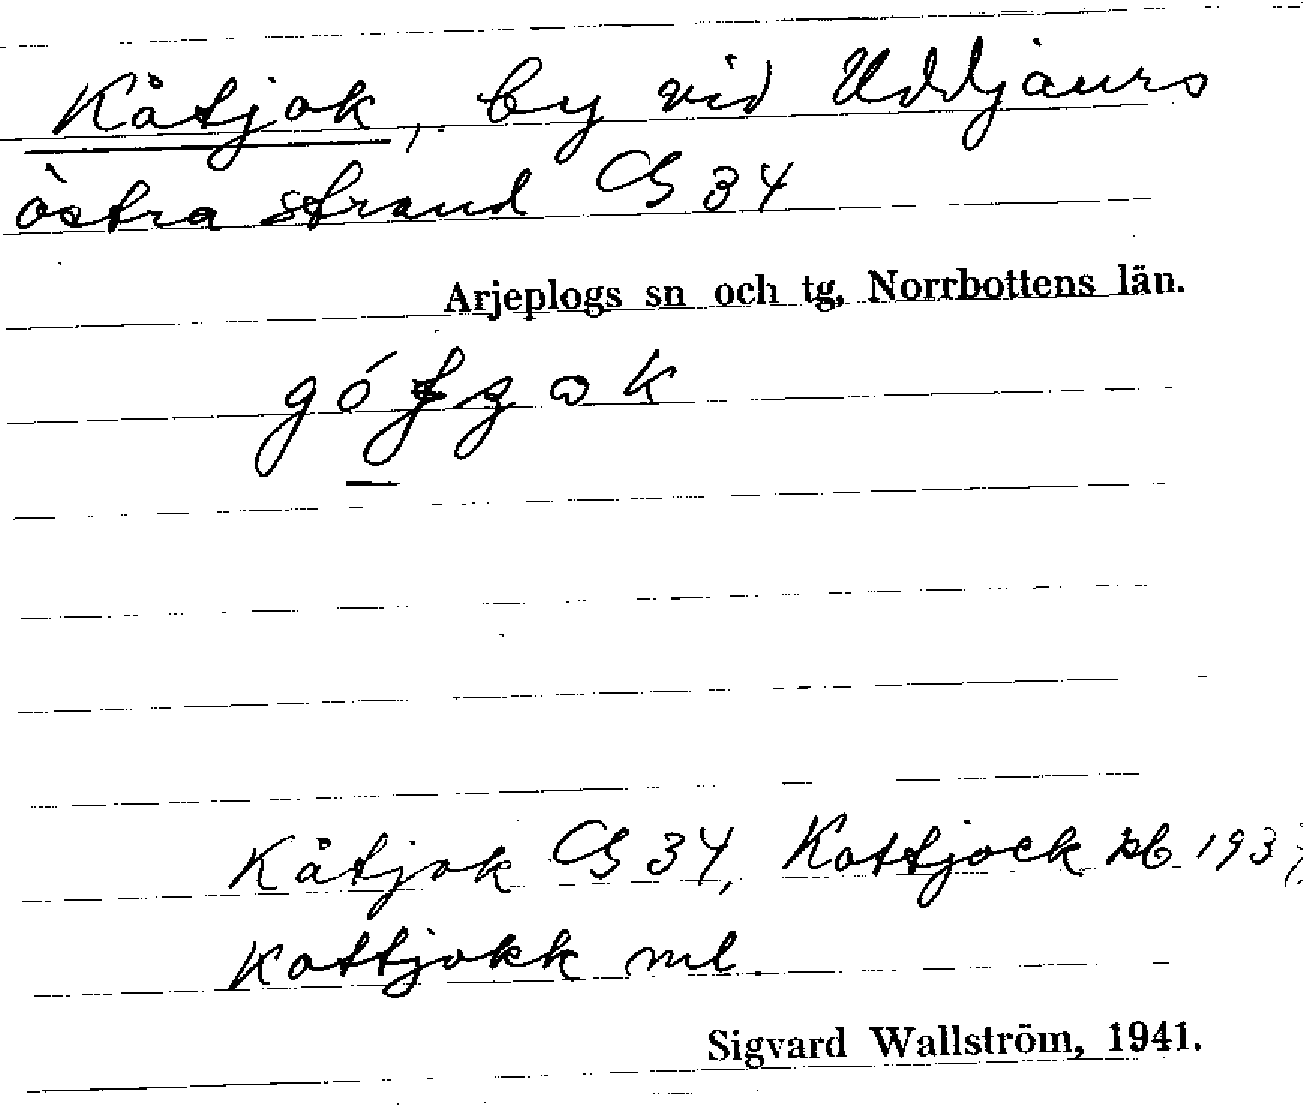 Kåtjok, by vid Uddjaurs
östra strand GS 34
Arjeplogs sn och tg, Norrbottens län.
Kåtjok GS 34, Kottjock kb 193
Kattjokk ml.
Sigvard Wallström, 1941.